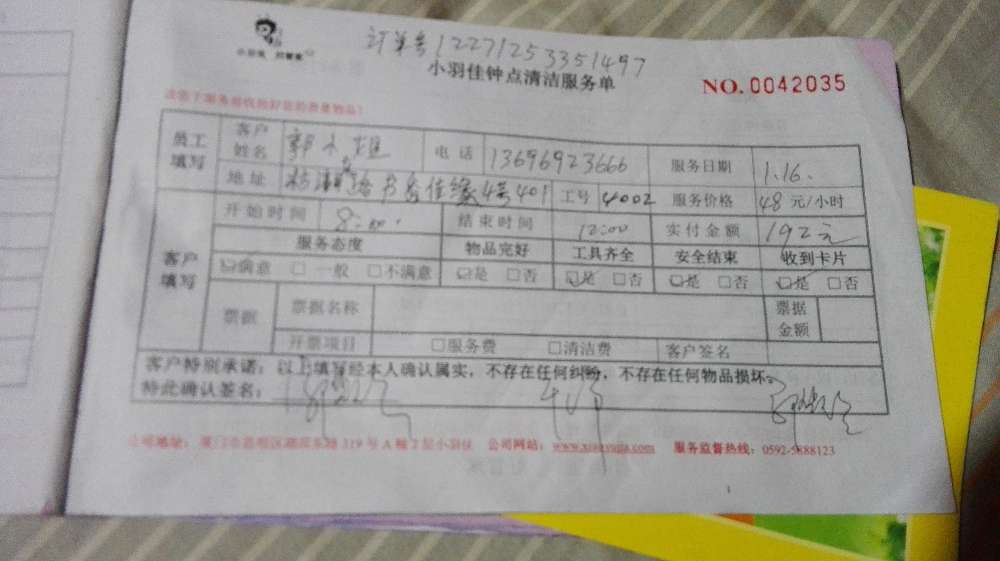 订单号12271253351497
小羽佳钟点清洁服务单
NO.0042035
员工填写 客户姓名 郭小姐 电话 13696923666 服务日期 1.16.
地址 书香佳缘4号401 工号 4002 服务价格 48元/小时
客户填写 开始时间 8:00. 结束时间 12:00 实付金额 192元
服务态度 物品完好 工具齐全 安全结束 收到卡片
☑满意 □一般 □不满意 ☑是 □否 ☑是 □否 ☑是 □否 ☑是 □否
票据 票据名称 票据金额
开票项目 □服务费 □清洁费 客户签名
客户特别承诺：以上填写经本人确认属实，不存在任何纠纷，不存在任何物品损坏。
特此确认签名：
公司地址：厦门市 319号A幢2层小羽佳 公司网站：www.xiaoyujia.com 服务监督热线：0592-5888123